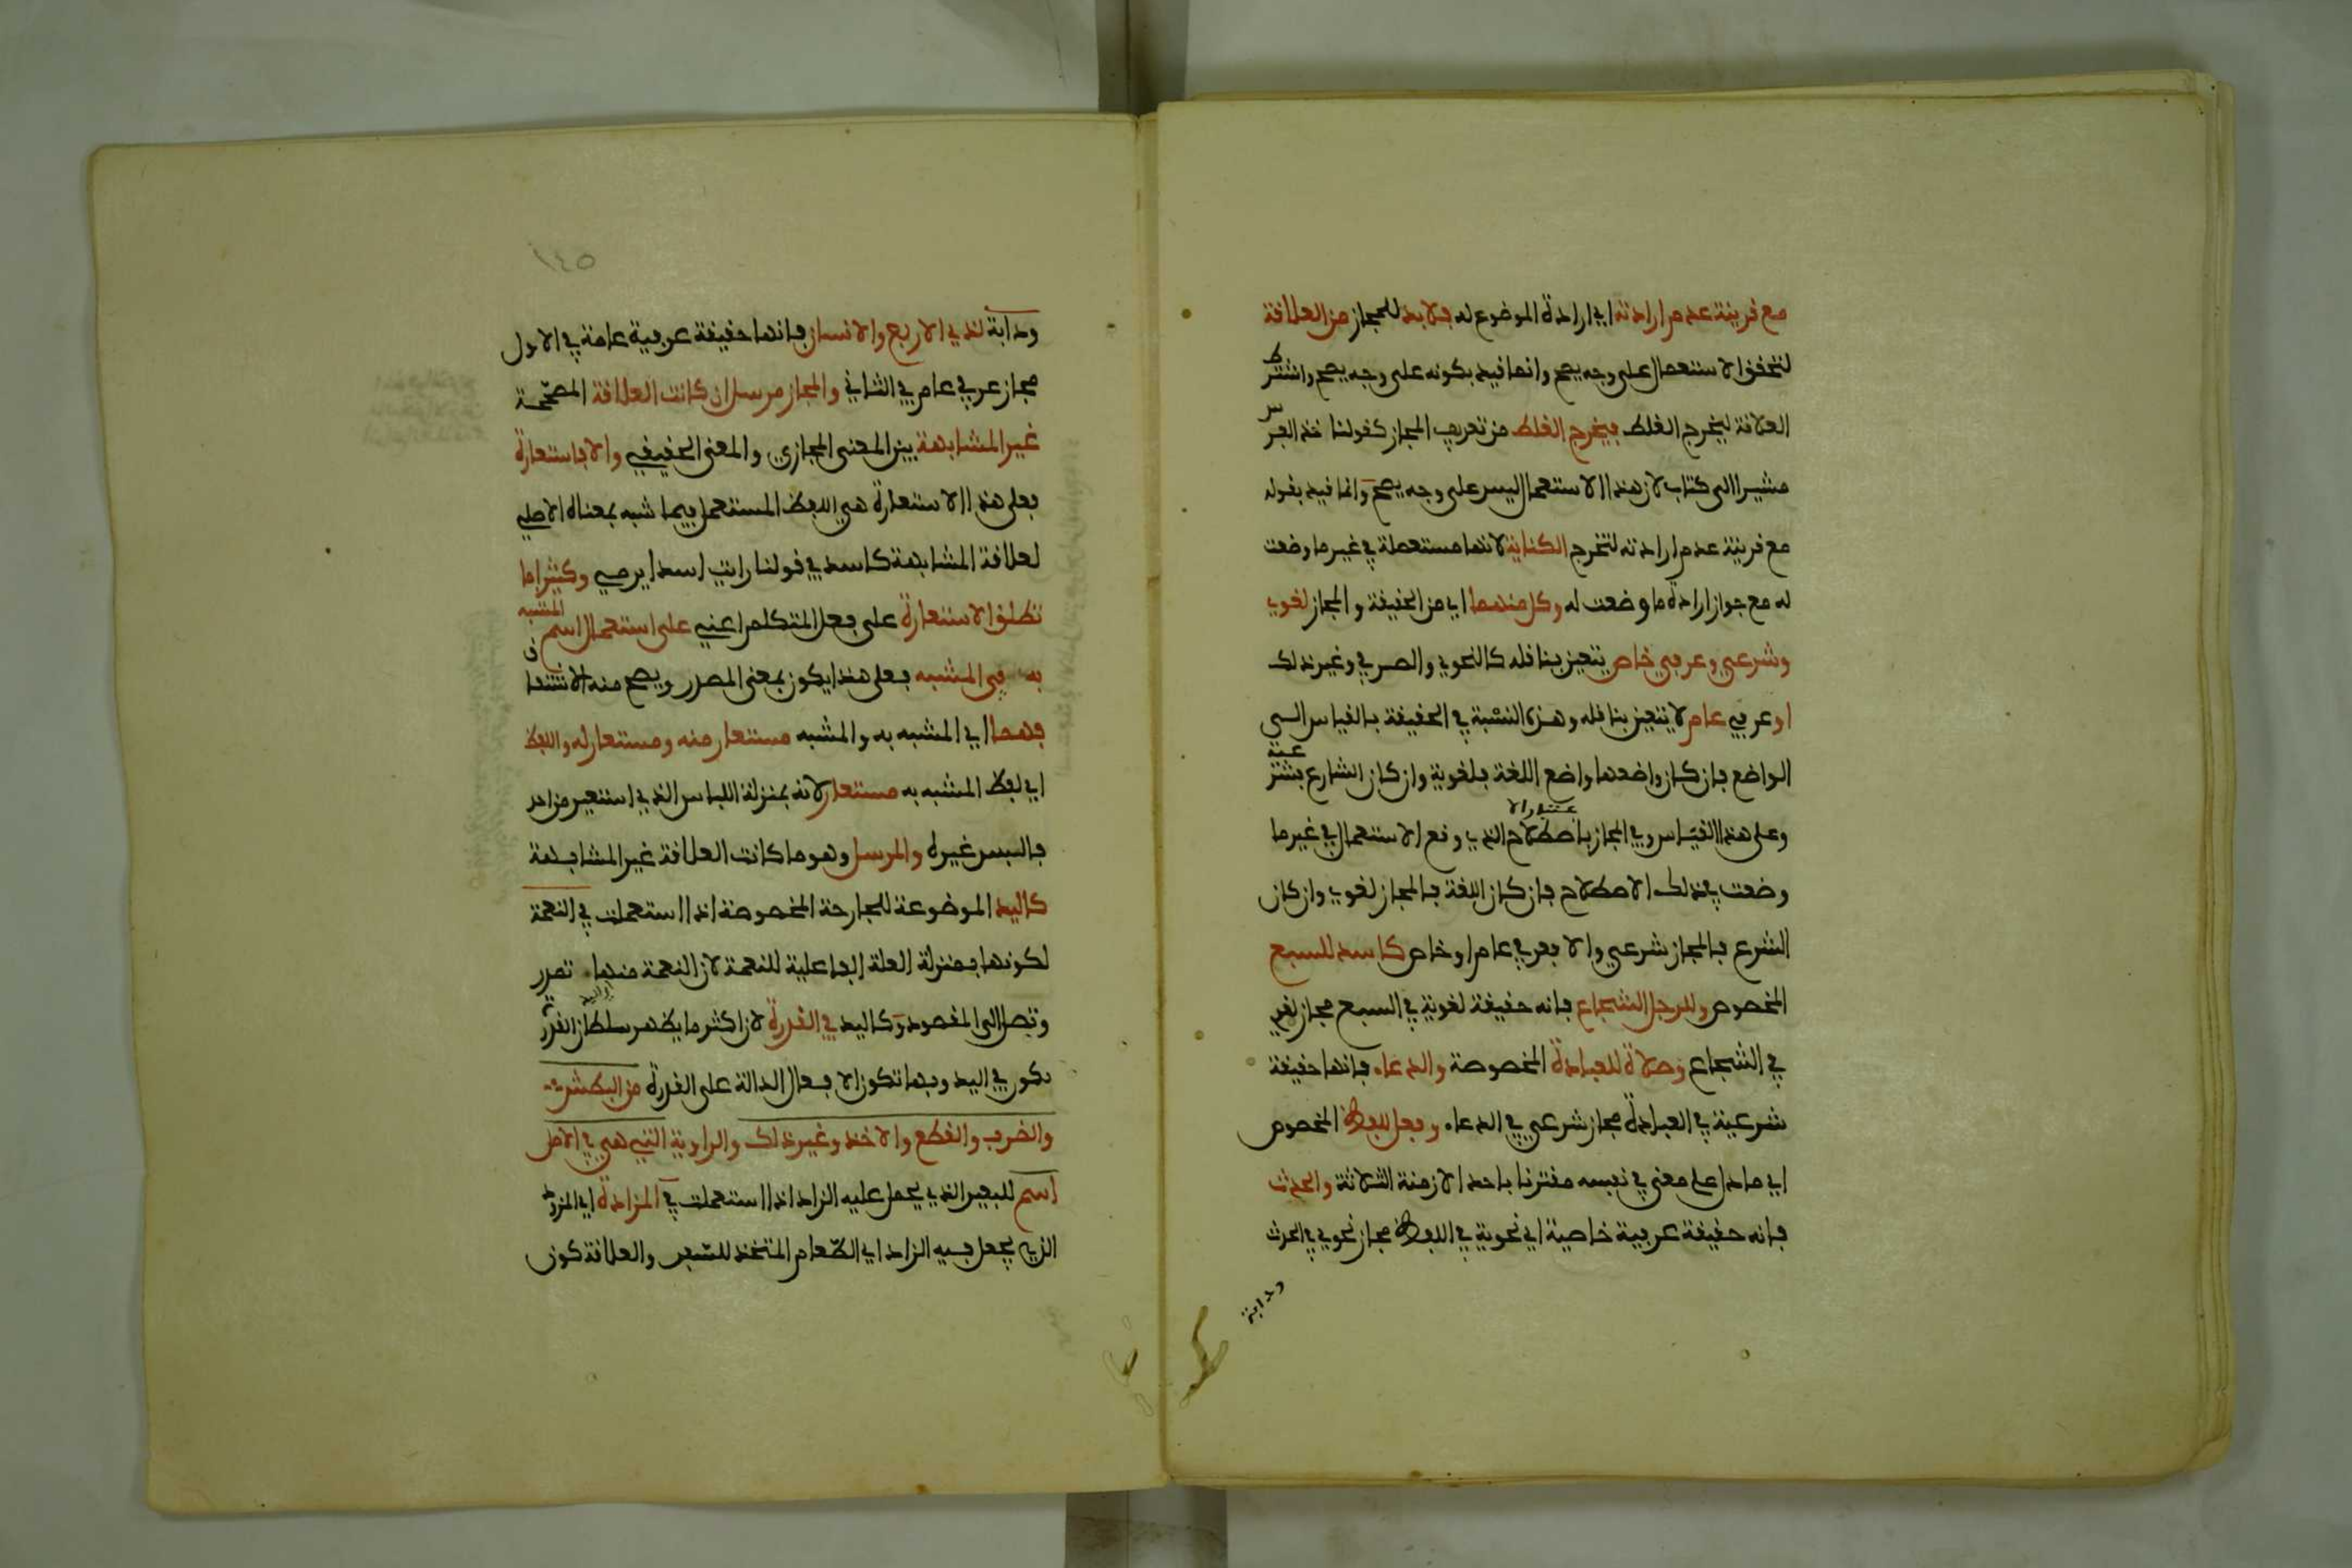 مع قرينة عدم ارادته اي ارادة الموضوع له فلابد للمجاز من العلاقة
لتحقق الاستعمال على وجه يصح وانما قيد بكونه على وجه يصح واشترط
العلاقة ليخرج الغلط فيخرج الغلط من تعريف المجاز كقولنا خذ الفرس
مشيرا الى كتاب لان هذا الاستعمال ليس على وجه يصح وانما قيد بقوله
مع قرينة عدم ارادته لتخرج الكناية لانها مستعملة في غير ما وضعت
له مع جواز ارادة ما وضعت له وكل منهما اي من الحقيقة والمجاز لغوي
وشرعي وعرفي خاص يتعين بناقله كالنحوي والصرفي وغير ذلك
او عرفي عام لا يتعين بناقله وهذه النسبة في الحقيقة بالقياس الى
الواضع فان كان واضعها واضع اللغة فلغوية وان كان الشارع فشرعية
وعلى هذا القياس وفي المجاز باعتبار الاصطلاح الذي وقع الاستعمال في غير ما
وضعت في ذلك الاصطلاح فان كان اللغة فالمجاز لغوي وان كان
الشرع فالمجاز شرعي والا فعرفي عام او خاص كاسد للسبع
المخصوص وللرجل الشجاع فانه حقيقة لغوية في السبع مجاز لغوي
في الشجاع وصلاة للعبادة المخصوصة والدعاء فانها حقيقة
شرعية في العبادة مجاز شرعي في الدعاء وفعل للفظ المخصوص
اي ما دل على معنى في نفسه مقترنا باحد الازمنة الثلاثة والحدث
فانه حقيقة عرفية خاصية اي نحوية في اللفظ مجاز نحوي في الحدث
ودابة
١٤٥
ودابة لذي الاربع والانسان فانها حقيقة عرفية عامة في الاول
مجاز عرفي عام في الثاني والمجاز مرسل ان كانت العلاقة المصححة
غير المشابهة بين المعنى المجازي والمعنى الحقيقي والا فاستعارة
فعلى هذا الاستعارة هي اللفظ المستعمل فيما شبه بمعناه الاصلي
لعلاقة المشابهة كاسد في قولنا رايت اسدا يرمي وكثيرا ما
تطلق الاستعارة على فعل المتكلم اعني على استعمال اسم المشبه
به في المشبه فعلى هذا يكون بمعنى المصدر ويصح منه الاشتقاق
فهما اي المشبه به والمشبه مستعار منه ومستعار له واللفظ
اي لفظ المشبه به مستعار لانه بمنزلة اللباس الذي استعير من احد
فالبس غيره والمرسل وهو ما كانت العلاقة غير المشابهة
كاليد الموضوعة للجارحة المخصوصة اذا استعملت في النعمة
لكونها بمنزلة العلة الفاعلية للنعمة لان النعمة منها تصدر
وتصل الى المقصود وكاليد في القدرة لان اكثر ما يظهر سلطان القدرة
يكون في اليد وبها تكون الافعال الدالة على القدرة من البطش
والضرب والقطع والاخذ وغير ذلك والراوية التي هي في الاصل
اسم للبعير الذي يحمل عليه الزاد اذا استعملت في المزادة اي المزود
الذي يجعل فيه الزاد اي الطعام المتخذ للسفر والعلاقة كون